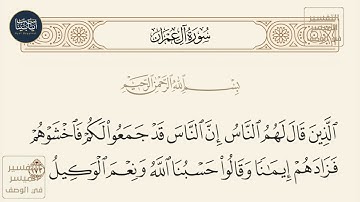 سُورَةُ آلِ عِمْرَان
التفسير
الميسر
في الوصف
بِسْمِ ٱللَّهِ ٱلرَّحْمَٰنِ ٱلرَّحِيمِ
ٱلَّذِينَ قَالَ لَهُمُ ٱلنَّاسُ إِنَّ ٱلنَّاسَ قَدْ جَمَعُوا۟ لَكُمْ فَٱخْشَوْهُمْ
فَزَادَهُمْ إِيمَٰنًا وَقَالُوا۟ حَسْبُنَا ٱللَّهُ وَنِعْمَ ٱلْوَكِيلُ ١٧٣
التفسير
الميسر
في الوصف